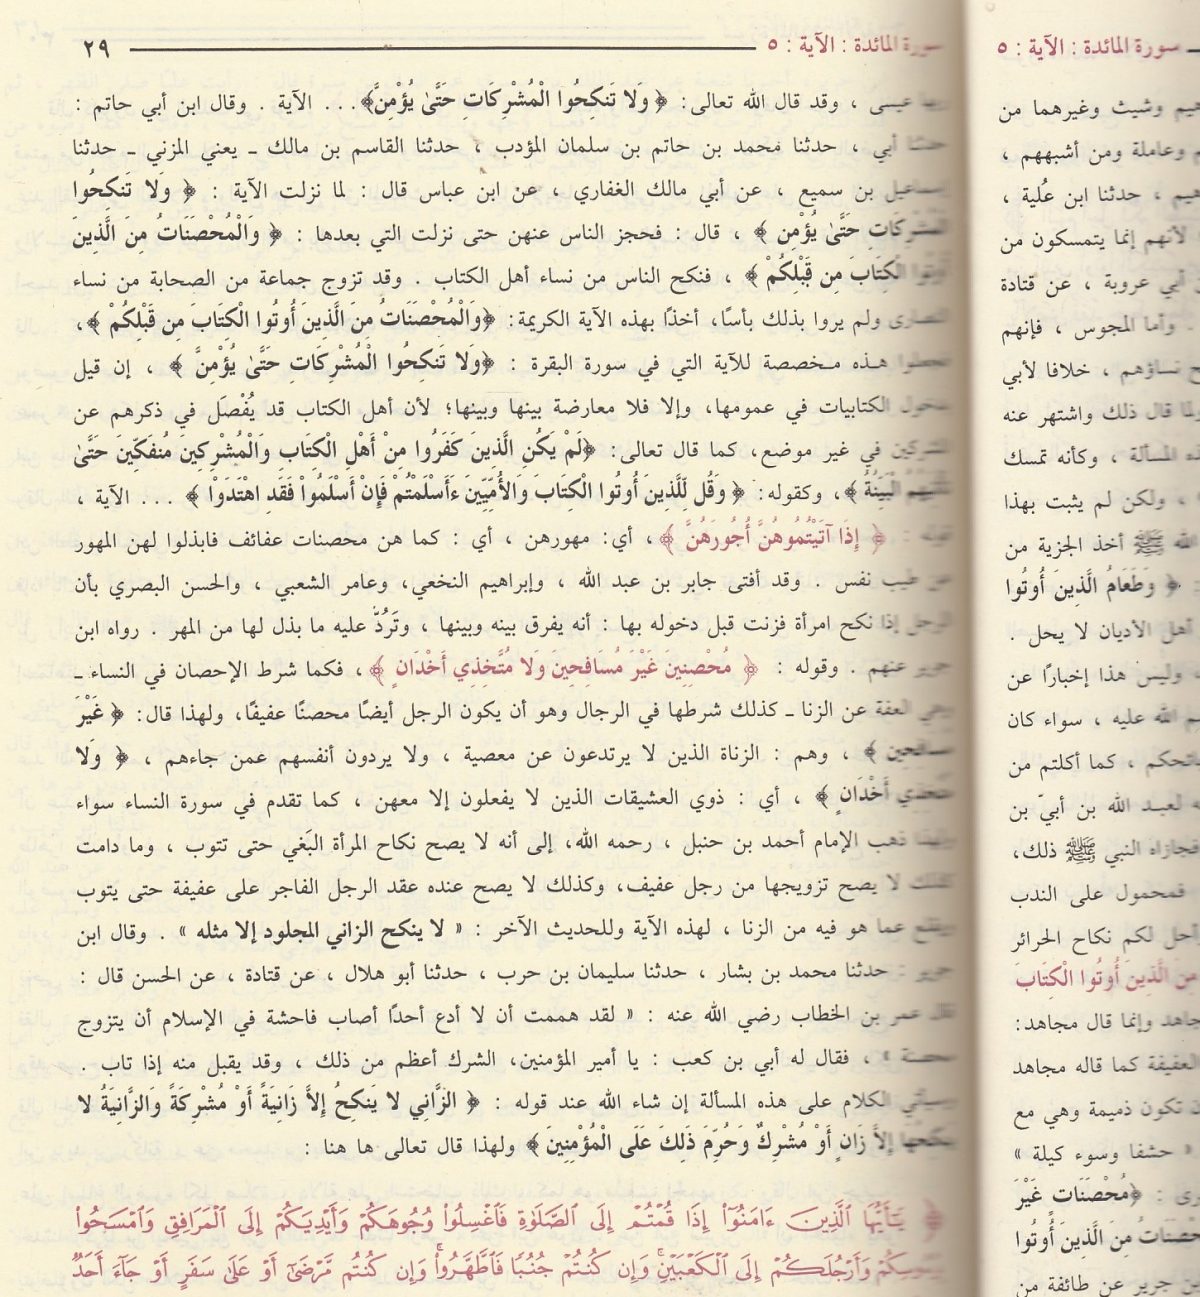 سورة المائدة : الآية : ٥
٢٩
عيسى ، وقد قال الله تعالى: ﴿ وَلا تَنكِحُوا الْمُشْرِكَاتِ حَتَّىٰ يُؤْمِنَّ﴾... الآية . وقال ابن أبي حاتم :
حدثنا أبي ، حدثنا محمد بن حاتم بن سلمان المؤدب ، حدثنا القاسم بن مالك ـ يعني المزني ـ حدثنا
إسماعيل بن سميع ، عن أبي مالك الغفاري ، عن ابن عباس قال : لما نزلت الآية : ﴿ وَلا تَنكِحُوا
الْمُشْرِكَاتِ حَتَّىٰ يُؤْمِنَ ﴾ ، قال : فحجز الناس عنهن حتى نزلت التي بعدها : ﴿ وَالْمُحْصَنَاتُ مِنَ الَّذِينَ
أُوتُوا الْكِتَابَ مِن قَبْلِكُمْ ﴾ ، فنكح الناس من نساء أهل الكتاب . وقد تزوج جماعة من الصحابة من نساء
النصارى ولم يروا بذلك بأسًا، أخذًا بهذه الآية الكريمة: ﴿وَالْمُحْصَنَاتُ مِنَ الَّذِينَ أُوتُوا الْكِتَابَ مِن قَبْلِكُمْ ﴾،
فجعلوا هذه مخصصة للآية التي في سورة البقرة : ﴿وَلا تَنكِحُوا الْمُشْرِكَاتِ حَتَّىٰ يُؤْمِنَّ ﴾ ، إن قيل
بدخول الكتابيات في عمومها، وإلا فلا معارضة بينها وبينها؛ لأن أهل الكتاب قد يُفْصَل في ذكرهم عن
المشركين في غير موضع، كما قال تعالى: ﴿لَمْ يَكُنِ الَّذِينَ كَفَرُوا مِنْ أَهْلِ الْكِتَابِ وَالْمُشْرِكِينَ مُنفَكِّينَ حَتَّىٰ
تَأْتِيَهُمُ الْبَيِّنَةُ ﴾، وكقوله: ﴿ وَقُل لِّلَّذِينَ أُوتوا الْكِتَابَ وَالأُمِّيِّينَ ءَأَسْلَمْتُمْ فَإِنْ أَسْلَمُواْ فَقَدِ اهْتَدَواْ ﴾ ... الآية ،
قوله : ﴿ إِذَا آتَيْتُمُوهُنَّ أُجُورَهُنَّ ﴾، أي: مهورهن ، أي : كما هن محصنات عفائف فابذلوا لهن المهور
عن طيب نفس . وقد أفتى جابر بن عبد الله ، وإبراهيم النخعي، وعامر الشعبي ، والحسن البصري بأن
الرجل إذا نكح امرأة فزنت قبل دخوله بها : أنه يفرق بينه وبينها ، وتَرُدّ عليه ما بذل لها من المهر . رواه ابن
جرير عنهم . وقوله : ﴿ مُحْصِنِينَ غَيْرَ مُسَافِحِينَ وَلا مُتَّخِذِي أَخْدَانٍ ﴾، فكما شرط الإحصان في النساء ـ
وهي العفة عن الزنا ـ كذلك شرطها في الرجال وهو أن يكون الرجل أيضًا محصنًا عفيفًا، ولهذا قال: ﴿ غَيْرَ
مُسَافِحِينَ ﴾ ، وهم : الزناة الذين لا يرتدعون عن معصية ، ولا يردون أنفسهم عمن جاءهم ، ﴿ وَلا
مُتَّخِذِي أَخْدَانٍ ﴾ ، أي : ذوي العشيقات الذين لا يفعلون إلا معهن ، كما تقدم في سورة النساء سواء
ولهذا ذهب الإمام أحمد بن حنبل ، رحمه الله، إلى أنه لا يصح نكاح المرأة البَغي حتى تتوب ، وما دامت
كذلك لا يصح تزويجها من رجل عفيف، وكذلك لا يصح عنده عقد الرجل الفاجر على عفيفة حتى يتوب
ويقلع عما هو فيه من الزنا ، لهذه الآية وللحديث الآخر : « لا ينكح الزاني المجلود إلا مثله » . وقال ابن
جرير : حدثنا محمد بن بشار ، حدثنا سليمان بن حرب ، حدثنا أبو هلال ، عن قتادة ، عن الحسن قال :
قال عمر بن الخطاب رضي الله عنه : « لقد هممت أن لا أدع أحدًا أصاب فاحشة في الإسلام أن يتزوج
محصنة » ، فقال له أبي بن كعب : يا أمير المؤمنين، الشرك أعظم من ذلك ، وقد يقبل منه إذا تاب .
وسيأتي الكلام على هذه المسألة إن شاء الله عند قوله : ﴿ الزَّانِي لا يَنكِحُ إِلاَّ زَانِيَةً أَوْ مُشْرِكَةً وَالزَّانِيَةُ لا
يَنكِحُهَا إِلاَّ زَانٍ أَوْ مُشْرِكٌ وَحُرِّمَ ذَلِكَ عَلَى الْمُؤْمِنِينَ ﴾ ولهذا قال تعالى ها هنا :
﴿ يَـٰٓأَيُّهَا ٱلَّذِينَ ءَامَنُوٓاْ إِذَا قُمْتُمْ إِلَى ٱلصَّلَوٰةِ فَٱغْسِلُواْ وُجُوهَكُمْ وَأَيْدِيَكُمْ إِلَى ٱلْمَرَافِقِ وَٱمْسَحُواْ
بِرُءُوسِكُمْ وَأَرْجُلَكُمْ إِلَى ٱلْكَعْبَيْنِ وَإِن كُنتُمْ جُنُبًا فَٱطَّهَّرُواْ وَإِن كُنتُم مَّرْضَىٰٓ أَوْ عَلَىٰ سَفَرٍ أَوْ جَآءَ أَحَدٌ
سورة المائدة : الآية : ٥
وشيث وغيرهما من
وعاملة ومن أشبههم ،
حدثنا ابن عُلية ،
لأنهم إنما يتمسكون من
أبي عروبة ، عن قتادة
. وأما المجوس ، فإنهم
نساؤهم ، خلافا لأبي
قال ذلك واشتهر عنه
المسألة ، وكأنه تمسك
، ولكن لم يثبت بهذا
الله ﷺ أخذ الجزية من
﴿ وَطَعَامُ الَّذِينَ أُوتُوا
أهل الأديان لا يحل .
وليس هذا إخبارًا عن
الله عليه ، سواء كان
كما أكلتم من
لعبد الله بن أبيّ بن
فجازاه النبي ﷺ ذلك،
فمحمول على الندب
أحل لكم نكاح الحرائر
مِنَ الَّذِينَ أُوتُوا الْكِتَابَ
وإنما قال مجاهد:
العفيفة كما قاله مجاهد
تكون ذميمة وهي مع
« حشفا وسوء كيلة »
: ﴿مُحْصَنَاتٍ غَيْرَ
مِنَ الَّذِينَ أُوتُوا
جرير عن طائفة من